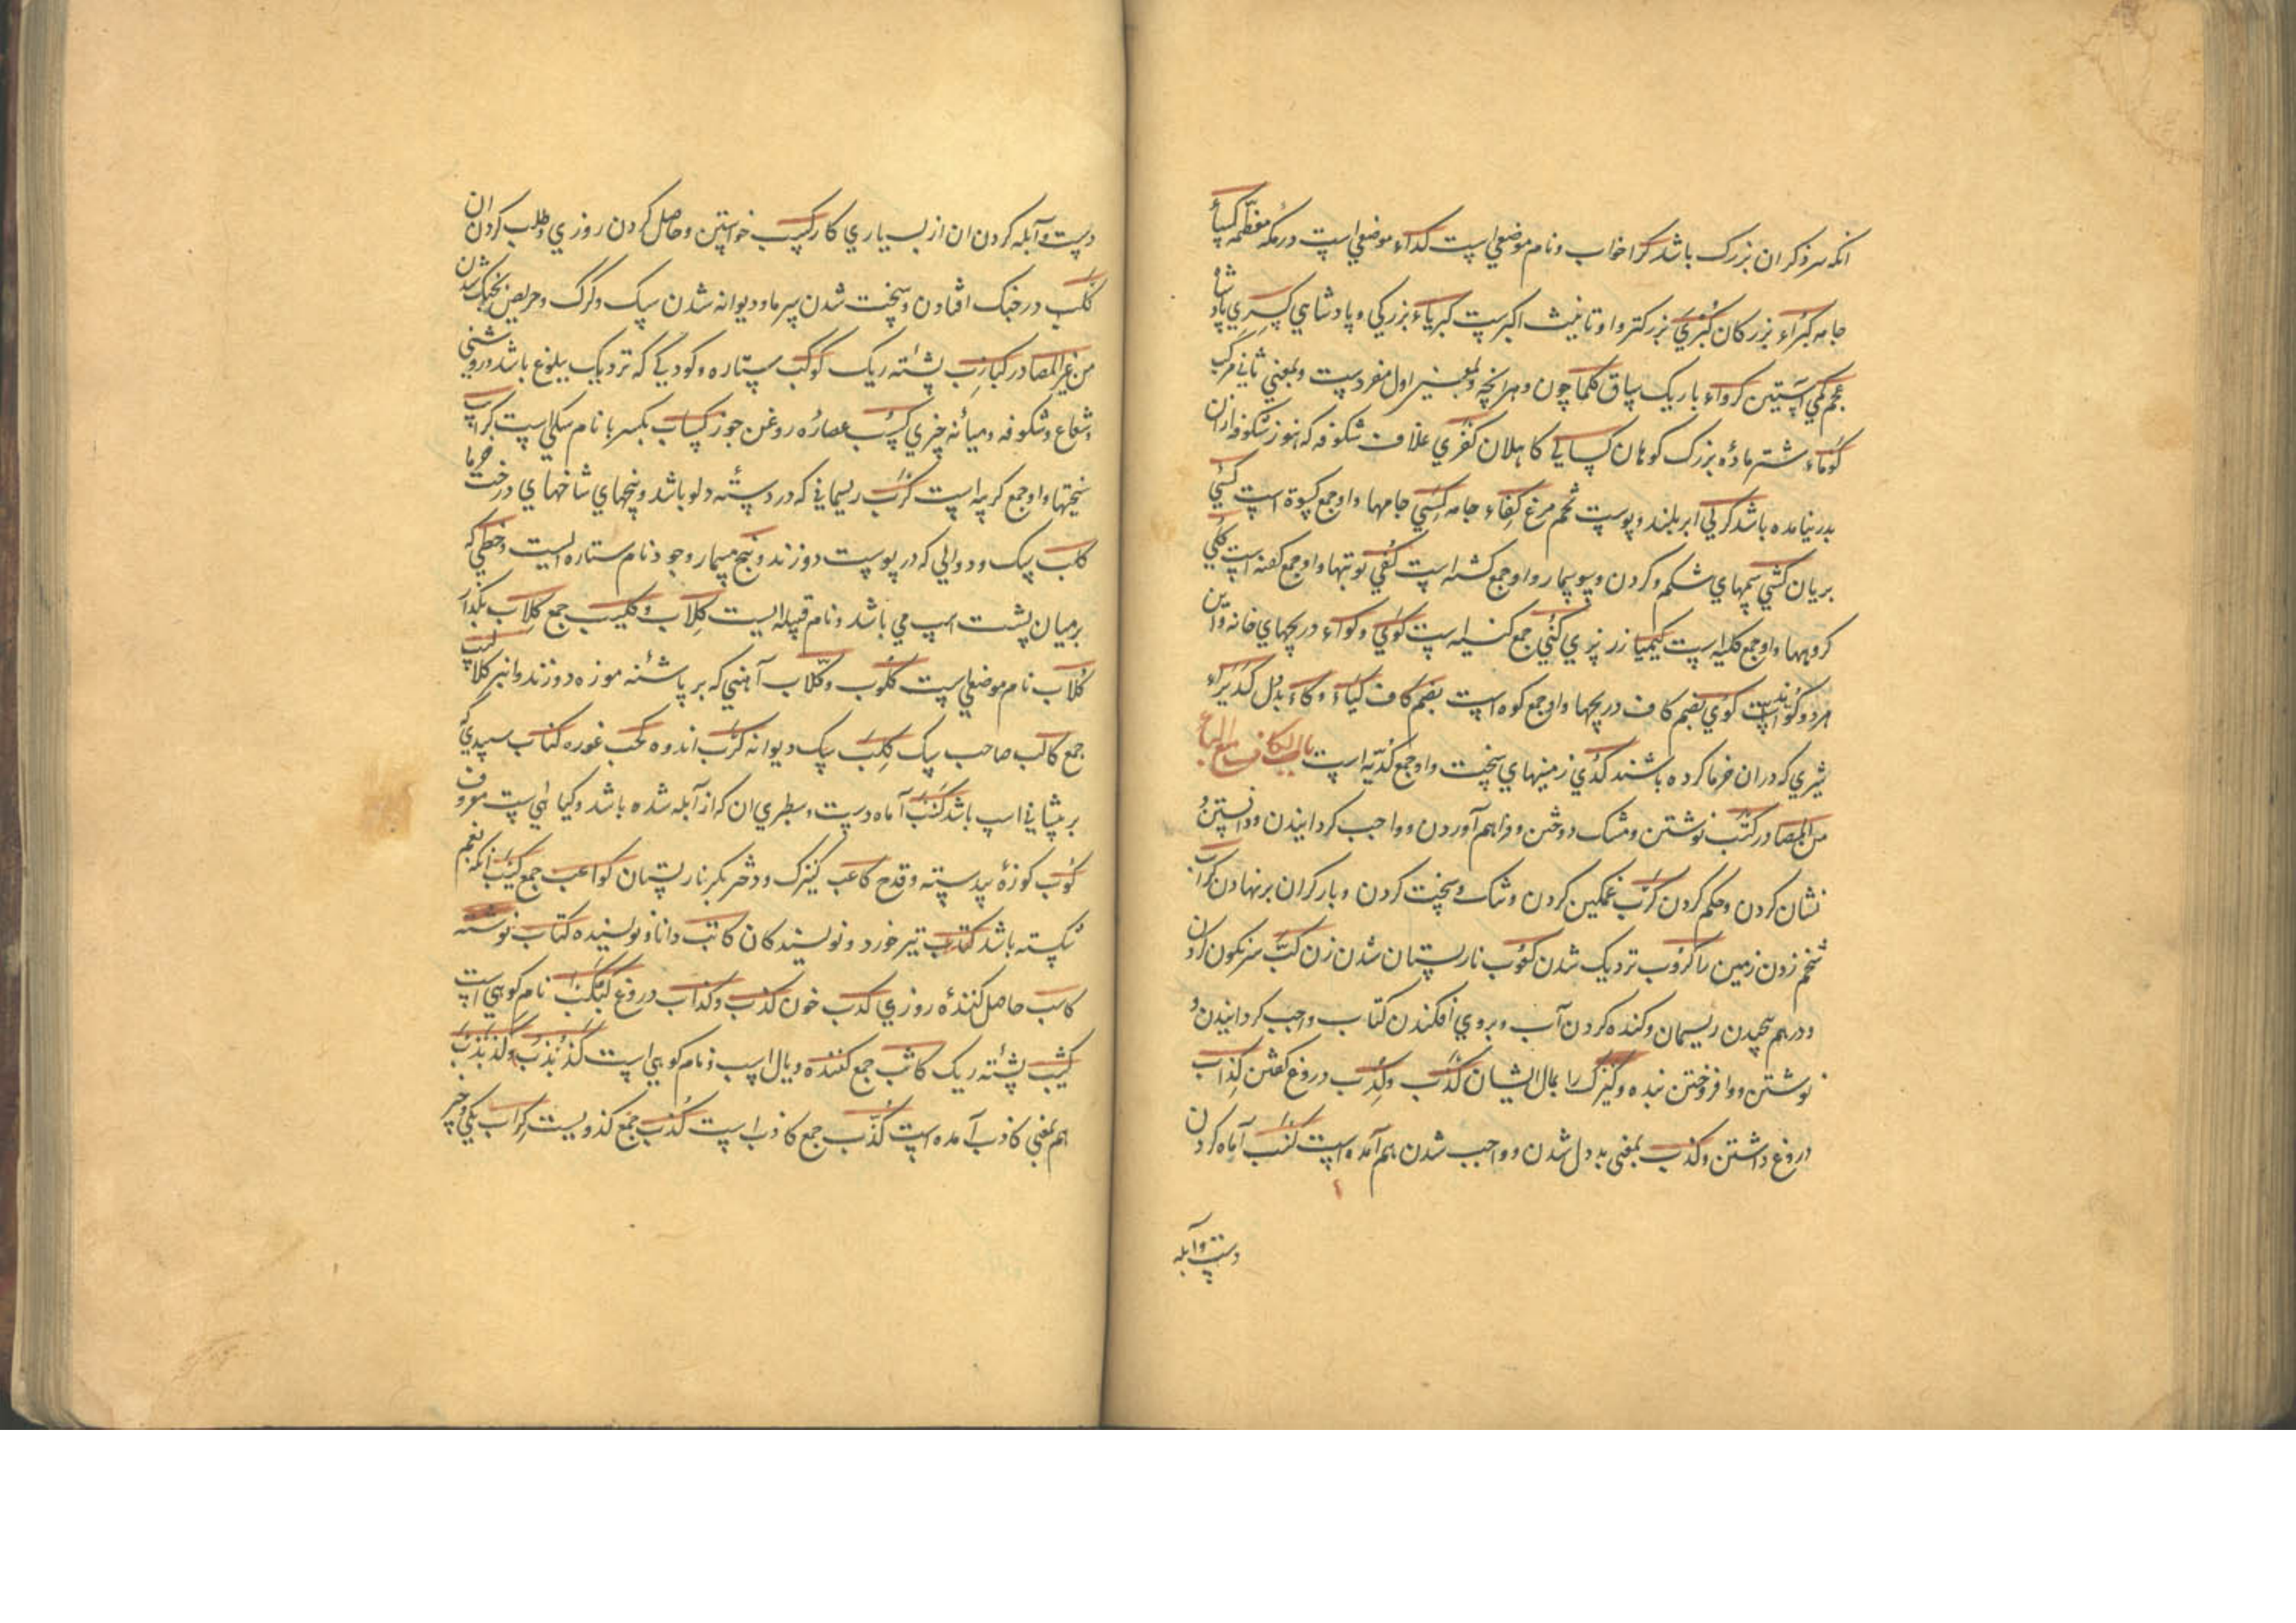 انکه سر ذکر ان بزرک باشد کرا خواب ونام موضعی است کداء موضعی است در مکه معظمه کساء
جامه کبراء بزرکان کبری بزرکتر واو تانیث اکبر ست کبریاء بزرکی و پادشاهی کسری پادشاه
عجم کمی آستین کرواء باریک ساق کلما چون وهرانچه و بمعنی اول منفردست وبمعنی ثانی مرکب
کوماء شتر مادۀ بزرک کوهان کسالی کاهلان کفری غلاف شکوفه که هنوز شکوفه ازان
بدر نیامده باشد کرلی ابر بلند و پوست تخم مرغ کفاء جامه کسی جامها واو جمع کسوة است کشی
بریان کشی پیهای شکم وکردن و سوسمار واو جمع کشیه است کفی قوتها واو جمع کفیه است کلی
کروهها واو جمع کلیه است کیمیا زر پزی کنی جمع کنیه است کوی وکواء دریچهای خانه واین
هر دو کوات کوی بضم کاف دریچها واو جمع کوه است بضم کاف کیاء وکاء بددل کدیراء
شیری که دران خرما کرده باشند کدی زمینهای سخت واو جمع کدیه است باب الکاف مع الباء
من المصادر کتب نوشتن ومشک دوختن وفراهم آوردن وواجب کردانیدن ودانستن و
نشان کردن وحکم کردن کرب غمکین کردن وتنک وسخت کردن وبار کران بر نهادن کراب
شخم زدن زمین را کروب نزدیک شدن کعوب نارپستان شدن زن کب سرنکون کردن
ودرهم پیچیدن ریسمان وکنده کردن آب وبروی افکندن کتاب واجب کردانیدن و
نوشتن ووافروختن بنده وکنیزک را بمال ایشان کذب وکذب دروغ کفتن کذاب
دروغ داشتن وکذب بمعنی بددل شدن وواجب شدن هم آمده است کنب آماه کردن
دست وآبله
دست وآبله کردن ان از بسیاری کار کسب خواستن وحاصل کردن روزی وطلب کردن ان
کلب در جنک افتادن وسخت شدن سرما ودیوانه شدن سک وکرک وحریص بجنک شدن
من غیر المصادر کبازب پشته ریک کوکب ستاره وکودکی که نزدیک ببلوغ باشد وروشنی
وشعاع وشکوفه ومیانه چیزی کسب عصاره روغن جوز کساب بکسر با نام سکی است کرب
سختیها واو جمع کربه است کرب ریسمانی که در دسته دلو باشد وبیخهای شاخهای درخت خرما
کلب سک ودوالی که در پوست دوزند ومیخ مسمار وجو ذ نام ستاره ایست وخطی که
بر میان پشت اسپ می باشد ونام قبیله ایست کلاب وکلیب جمع کلاب بکذار
کلاب نام موضعی است کلوب وکلاب آهنی که بر پاشنه موزه دوزند وانبر کلاب
جمع کالب صاحب سک کلب سک دیوانه کرب اندوه کحب غوره کتاب سپیدی که
بر پیشانی اسپ باشد کنب آماه دست وسطبری ان که از آبله شده باشد وکیاهی است معروف
کوب کوزۀ بیدسته وقدح کاعب کنیزک ودختر بکر نارپستان کواعب جمع کیب انکه بغم
شکسته باشد کتاب تیر خورد ونویسندکان کاتب دانا ونویسنده کتاب نوشته
کاسب حاصل کنندۀ روزی کدب خون کذب وکذاب دروغ کبکب نام کوهی است
کثیب پشته ریک کاثب جمع کننده ویال اسپ ونام کوهی است کذبذب وکذبذب
هم بمعنی کاذب آمده است کذب جمع کاذب است کذب جمع کذوبست کراب یکی وخبر